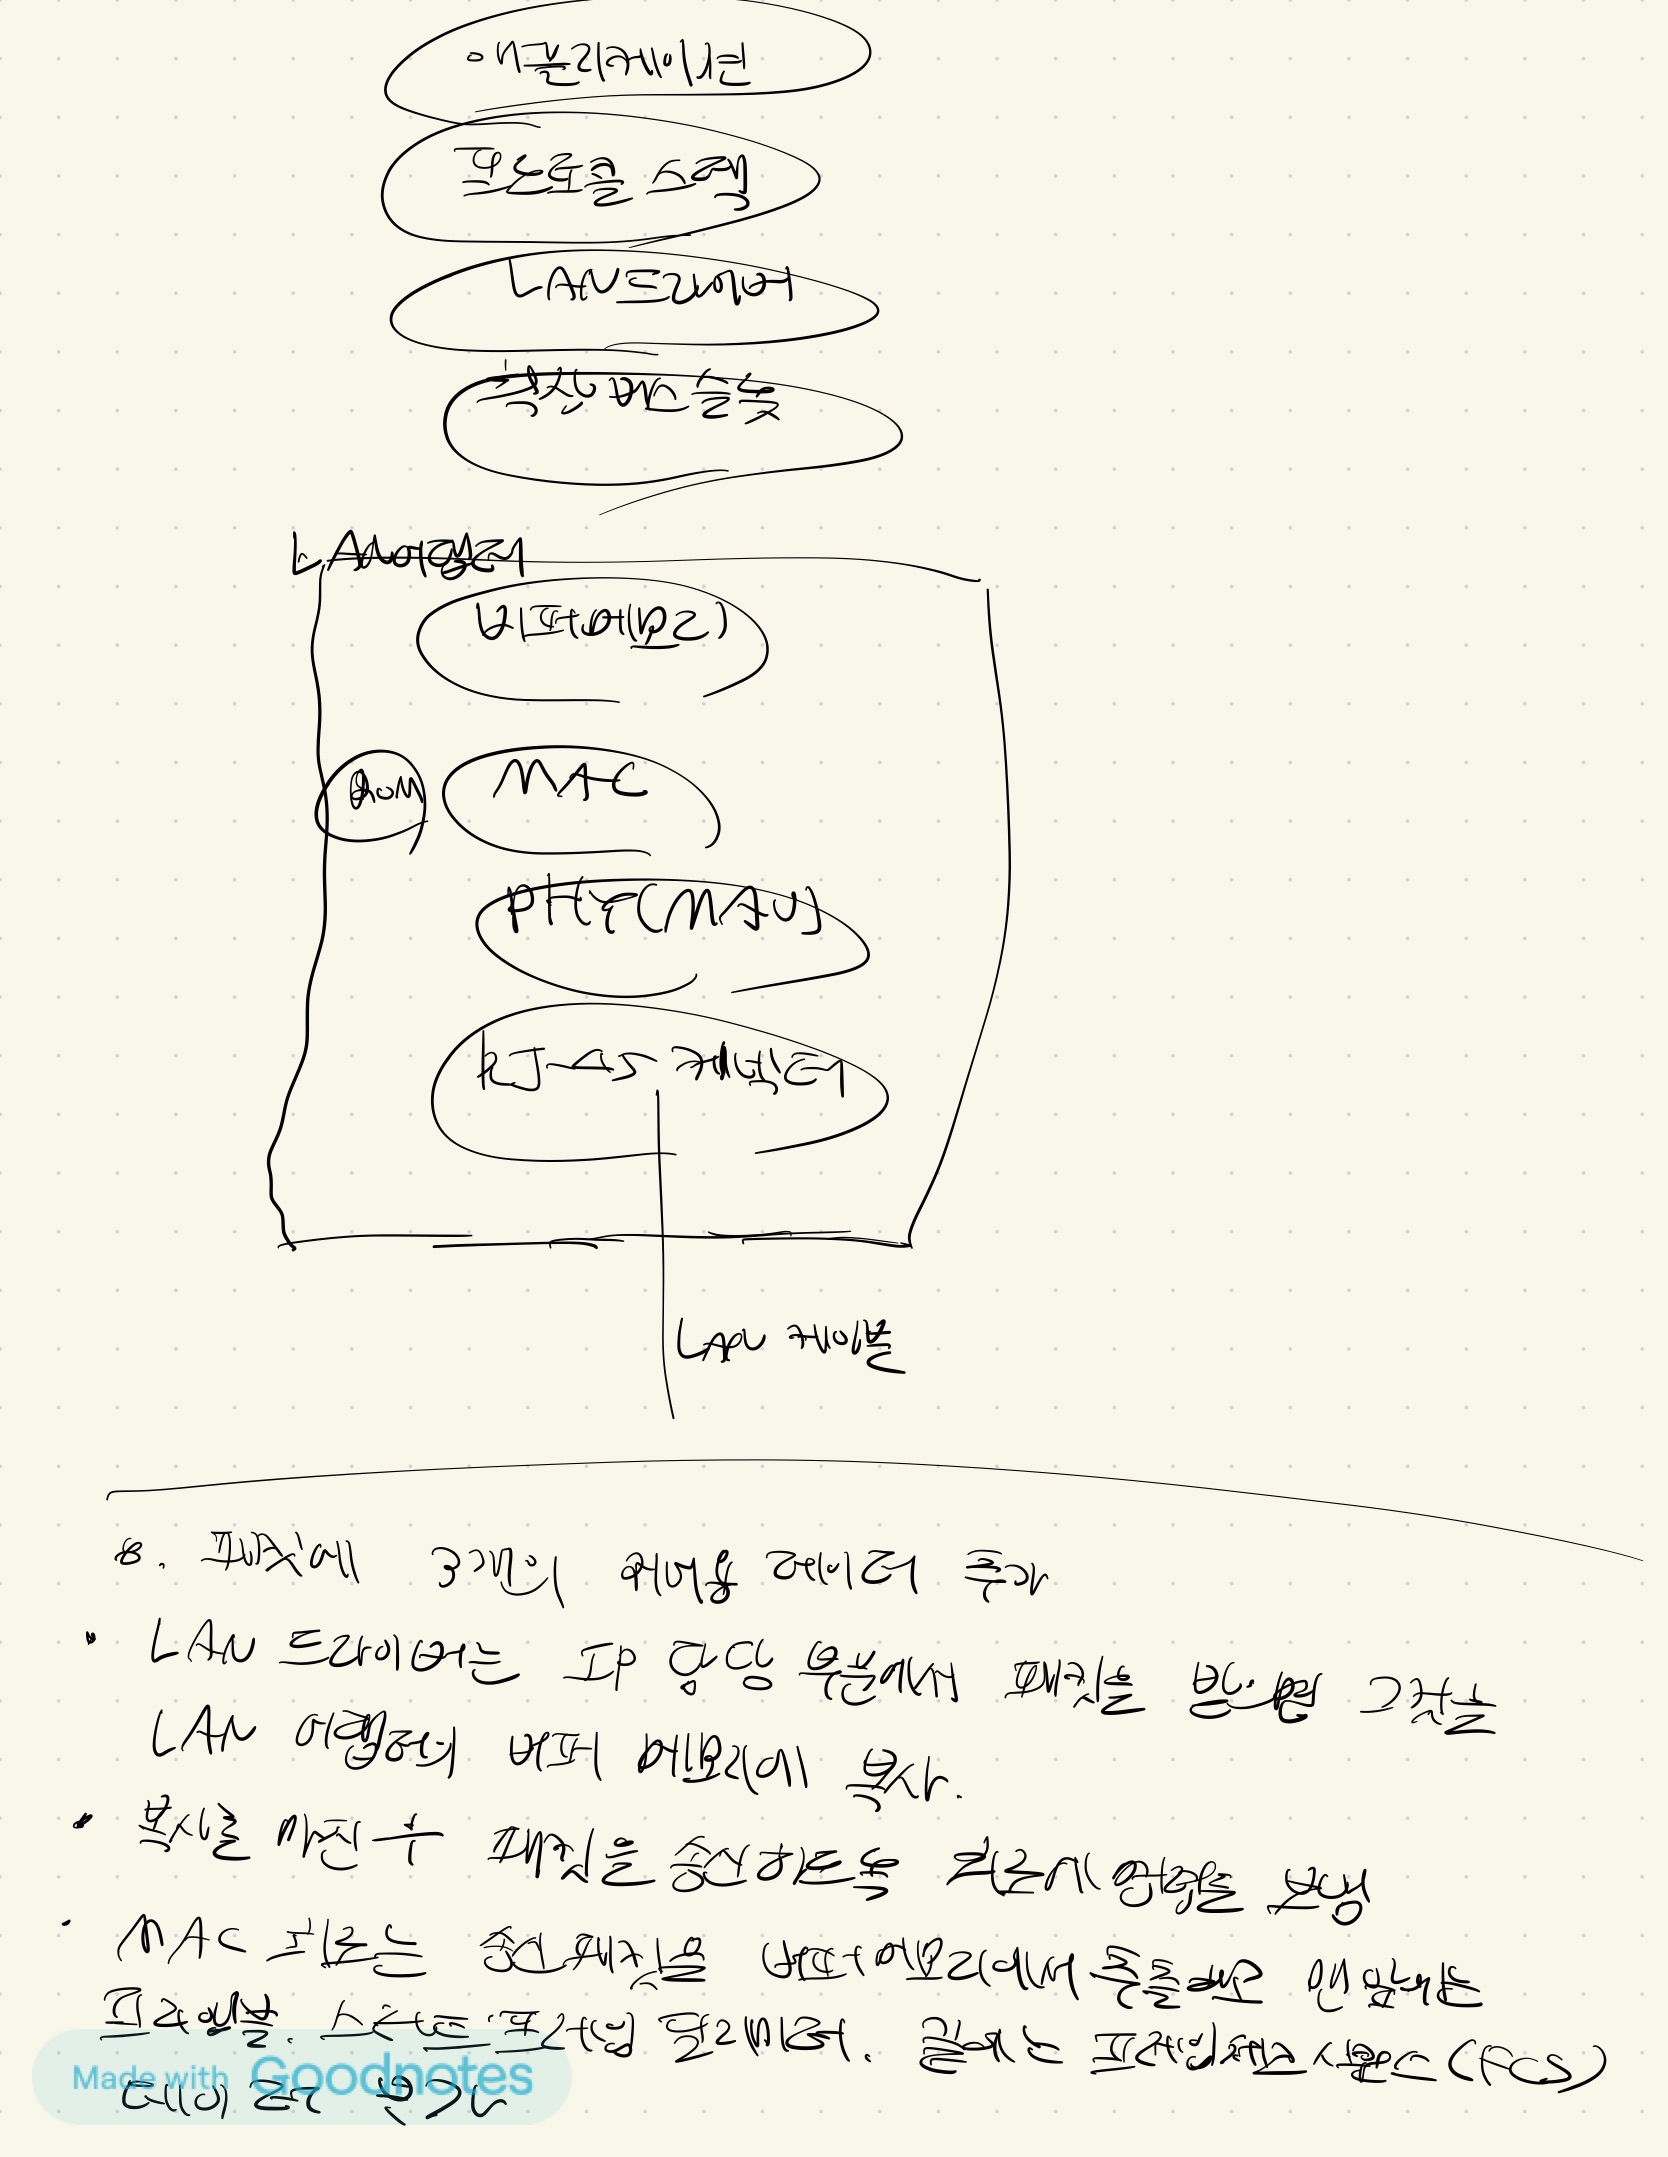 애플리케이션
프로토콜 스택
LAN드라이버
확장 버스 슬롯
LAN어댑터
버퍼메모리
ROM
MAC
PHY(MAU)
RJ-45 커넥터
LAN 케이블
8. 패킷에 3개의 제어용 데이터 추가
• LAN 드라이버는 IP 담당 부분에서 패킷을 받으면 그것을
LAN 어댑터의 버퍼 메모리에 복사.
• 복사를 마친 후 패킷을 송신하도록 회로에 명령을 보냄
• MAC 회로는 송신패킷을 버퍼 메모리에서 추출하고 맨 앞에는
프리앰블. 스타트 프레임 딜리미터. 끝에는 프레임체크시퀀스(FCS)
데이터를 부가
Made with Goodnotes